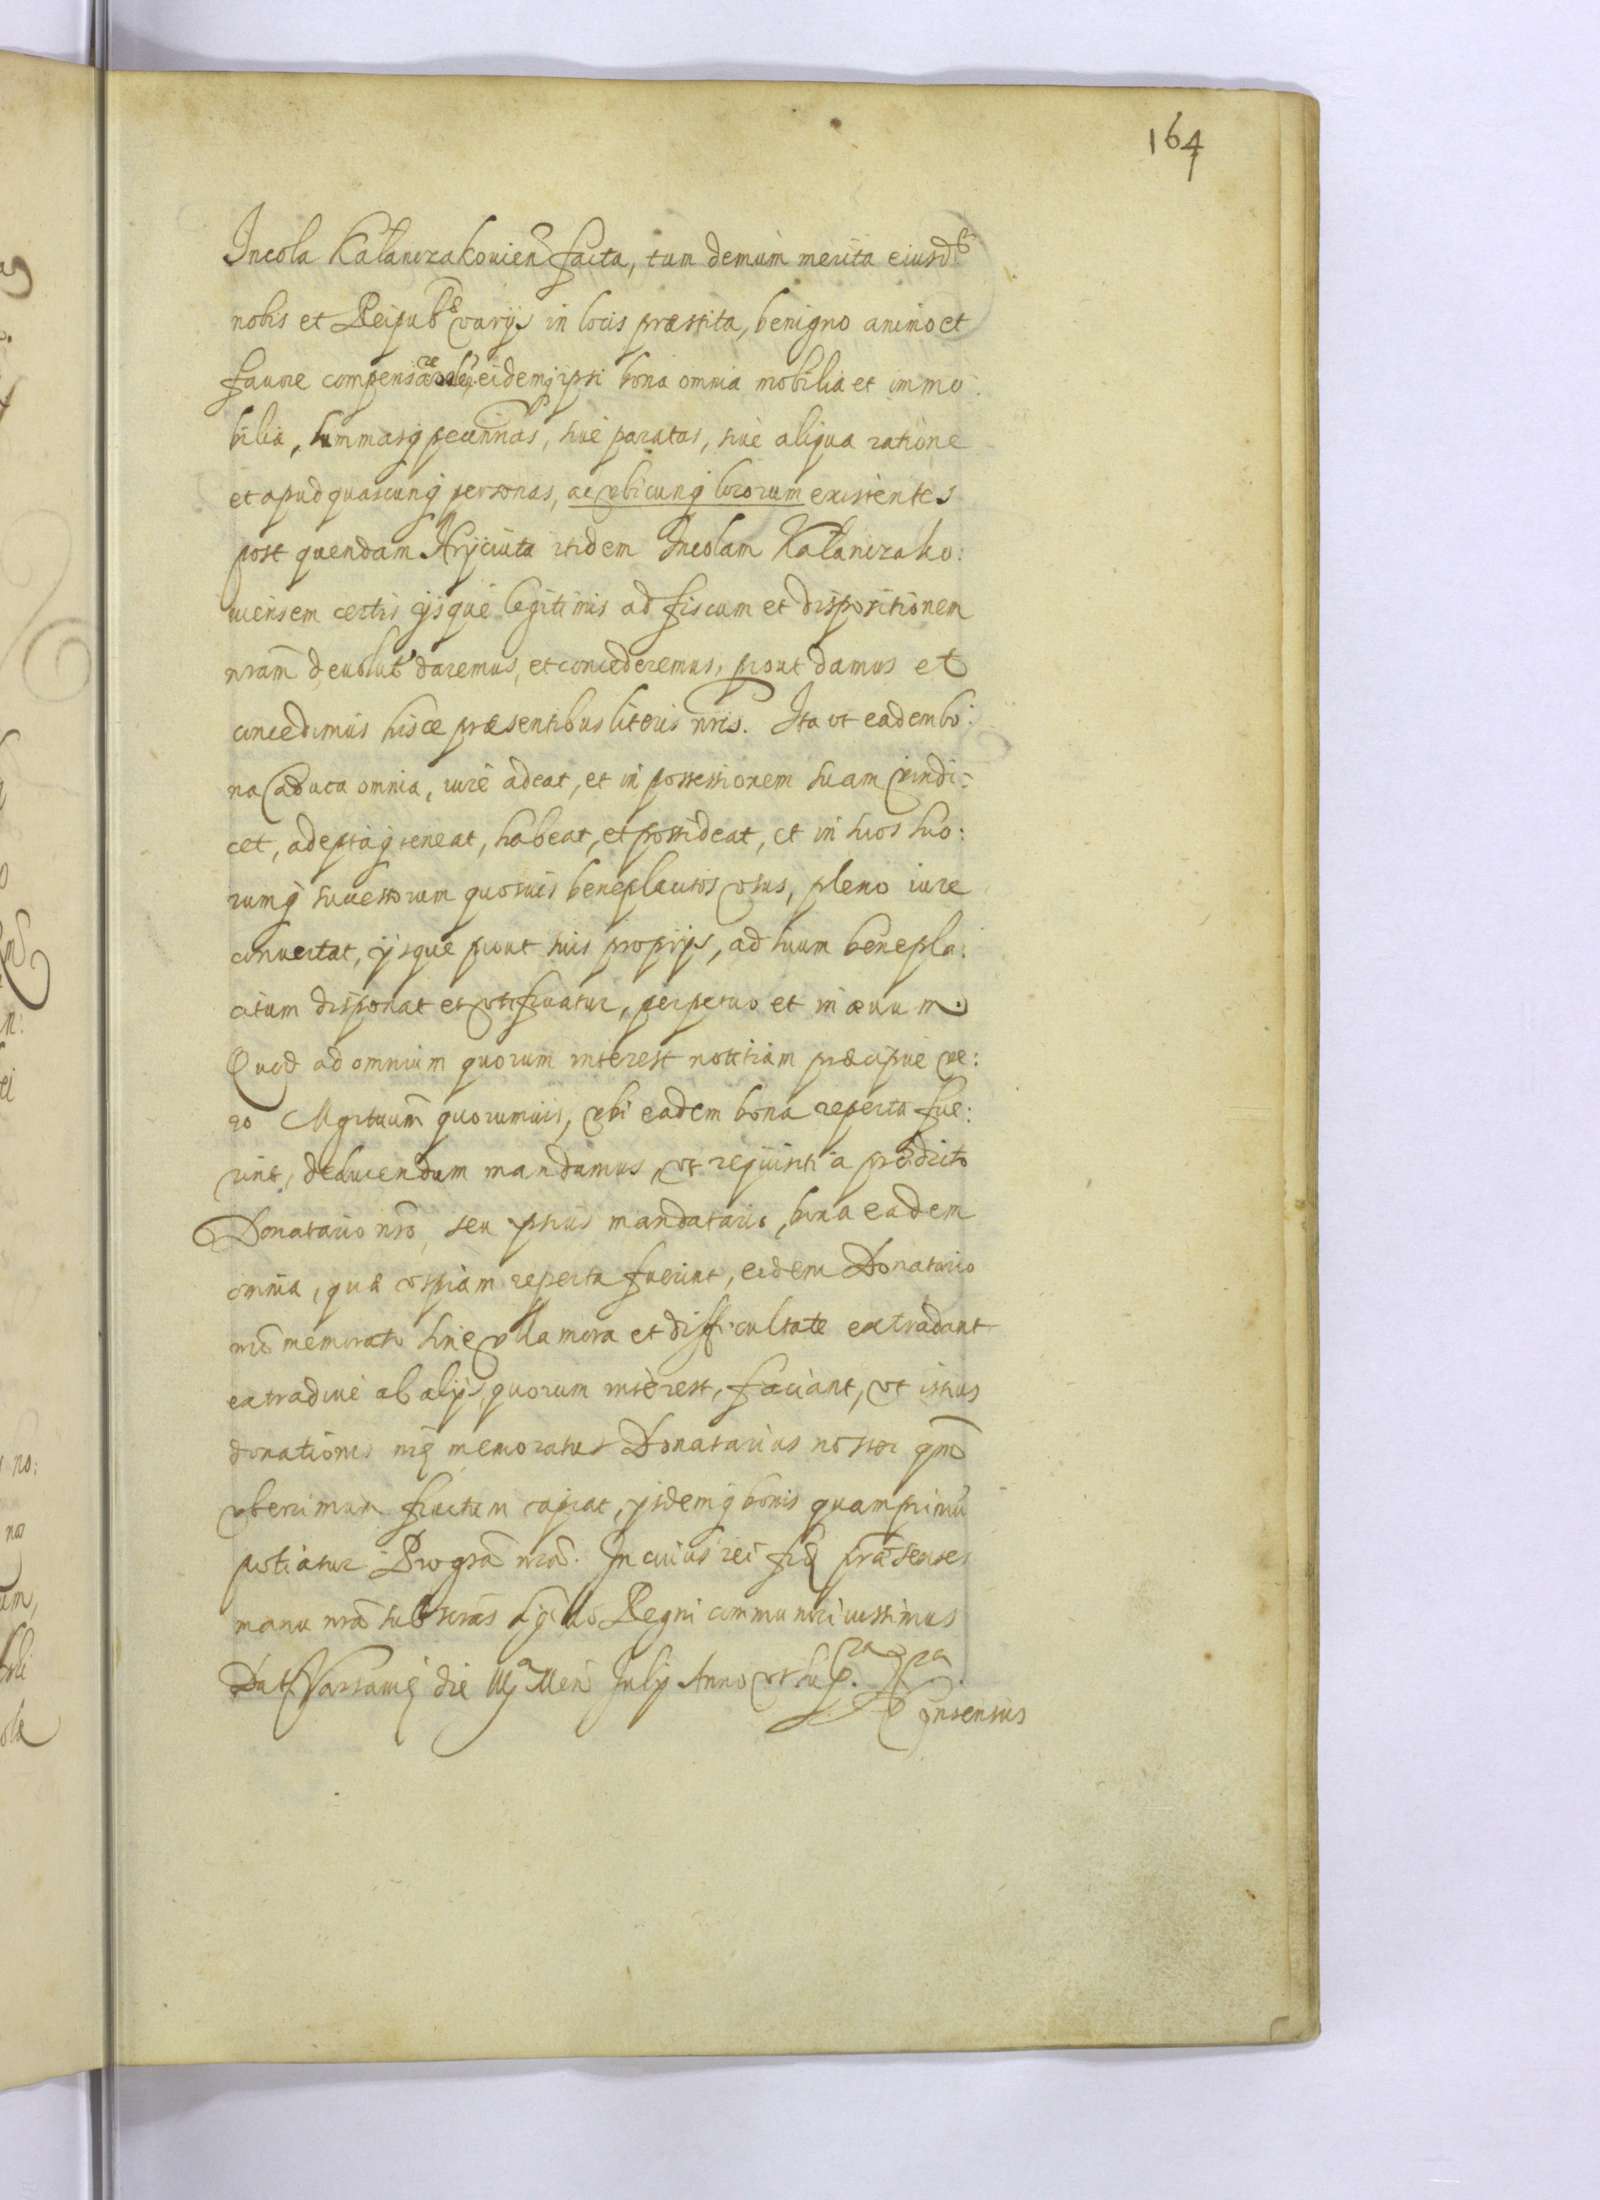 164
Incola Kałanczakouień facta, tum demum merita eiusd
nobis et Reipub varijs in locis præstita, benigno animo et
fauore compensare eidemq ipsi bona omnia mobilia et immo
bilia, summasq pecunias, siue paratas, siue aliqua ratione
et apud quascunq personas, ac vbicunq locorum existentes
post quendam Hryciuta itidem Incolam Kałanczako:
uiensem certis ijsque legitimis ad fiscum et dispositionem
nram deuolut daremus, et concederemus, prout damus et
concedimus hisce præsentibus literis nris. Ita vt eadem bo:
na caduca omnia, iure adeat, et in possessionem suam vindi:
cet, adeptaq teneat, habeat, et possideat, et in suos suo:
rumq successorum quosuis beneplacitos vsus, pleno iure
conuertat, ijsque prout suis proprijs, ad suum benepla:
citum disponat et vtifruatur, perpetuo et in æuum.
Quod ad omnium quorum interest notitiam præcipue ve:
ro Mgrtuum quorumuis, vbi eadem bona reperta fue:
rint, deducendum mandamus, vt requisiti a prædicto
Donatario nro, seu ipsius mandatario, bona eadem
omnia, quæ vspiam reperta fuerint, eidem Donatario
nro memorato sine vlla mora et difficultate extradant
extradiue ab alijs, quorum interest, faciant, vt istius
donationis nrę memoratus Donatarius noster qm
vberrimum fructum capiat, ijsdemq bonis quamprimu
potiatur Pro gra nra. In cuius rei fid præsentes
manu nra subscras sigillo Regni communiri iussimus
Dat Varsauię die Mēn Julij Anno vt supra
Consensus